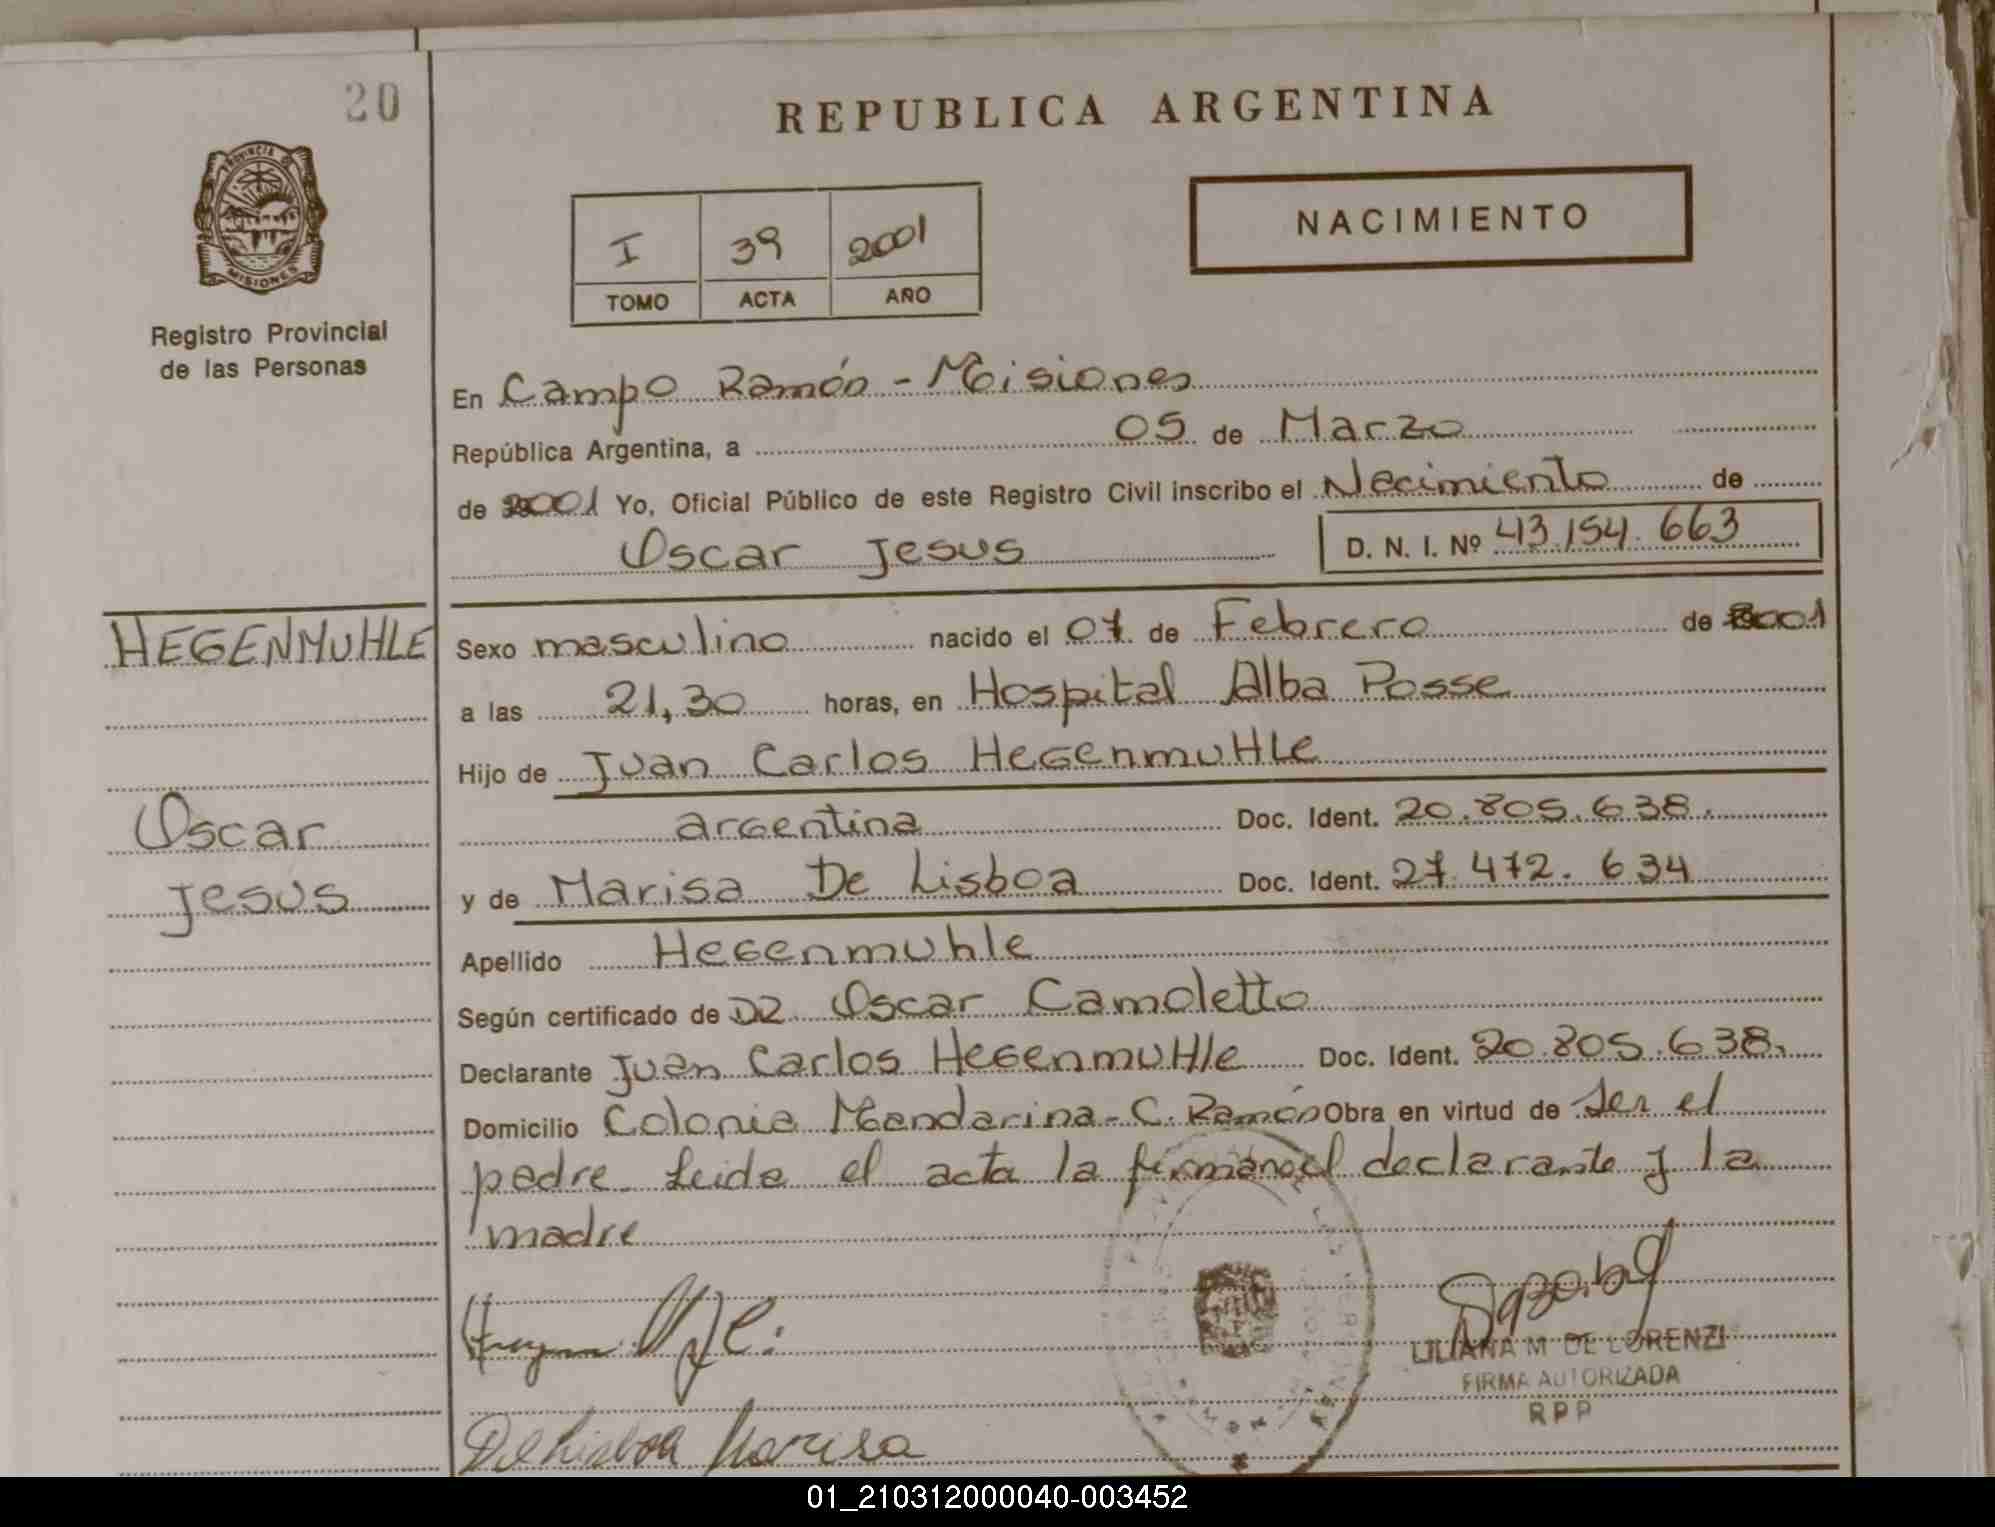 20
REPUBLICA ARGENTINA
PROVINCIA DE
MISIONES
Registro Provincial
de las Personas
I 39 2001
TOMO ACTA AÑO
NACIMIENTO
En Campo Ramón - Misiones
República Argentina, a 05 de Marzo
de 2001 Yo, Oficial Público de este Registro Civil inscribo el Necimiento de
Oscar Jesus D. N. I. Nº 43.154.663
HEGENMUHLE
Oscar
Jesus
Sexo masculino nacido el 07 de Febrero de 2001
a las 21,30 horas, en Hospital Alba Posse
Hijo de Juan Carlos HegenmuHle
argentina Doc. Ident. 20.805.638.
y de Marisa De Lisboa Doc. Ident. 27.472.634
Apellido Hegenmuhle
Según certificado de DR Oscar Camoletto
Declarante Juan Carlos HegenmuHle Doc. Ident. 20.805.638.
Domicilio Colonia Mandarina - C. Ramón Obra en virtud de ser el
padre. Leida el acta la firman el declarante y la
madre
De Lisboa Marisa
LILIANA M DE LORENZI
FIRMA AUTORIZADA
RPP
01_210312000040-003452